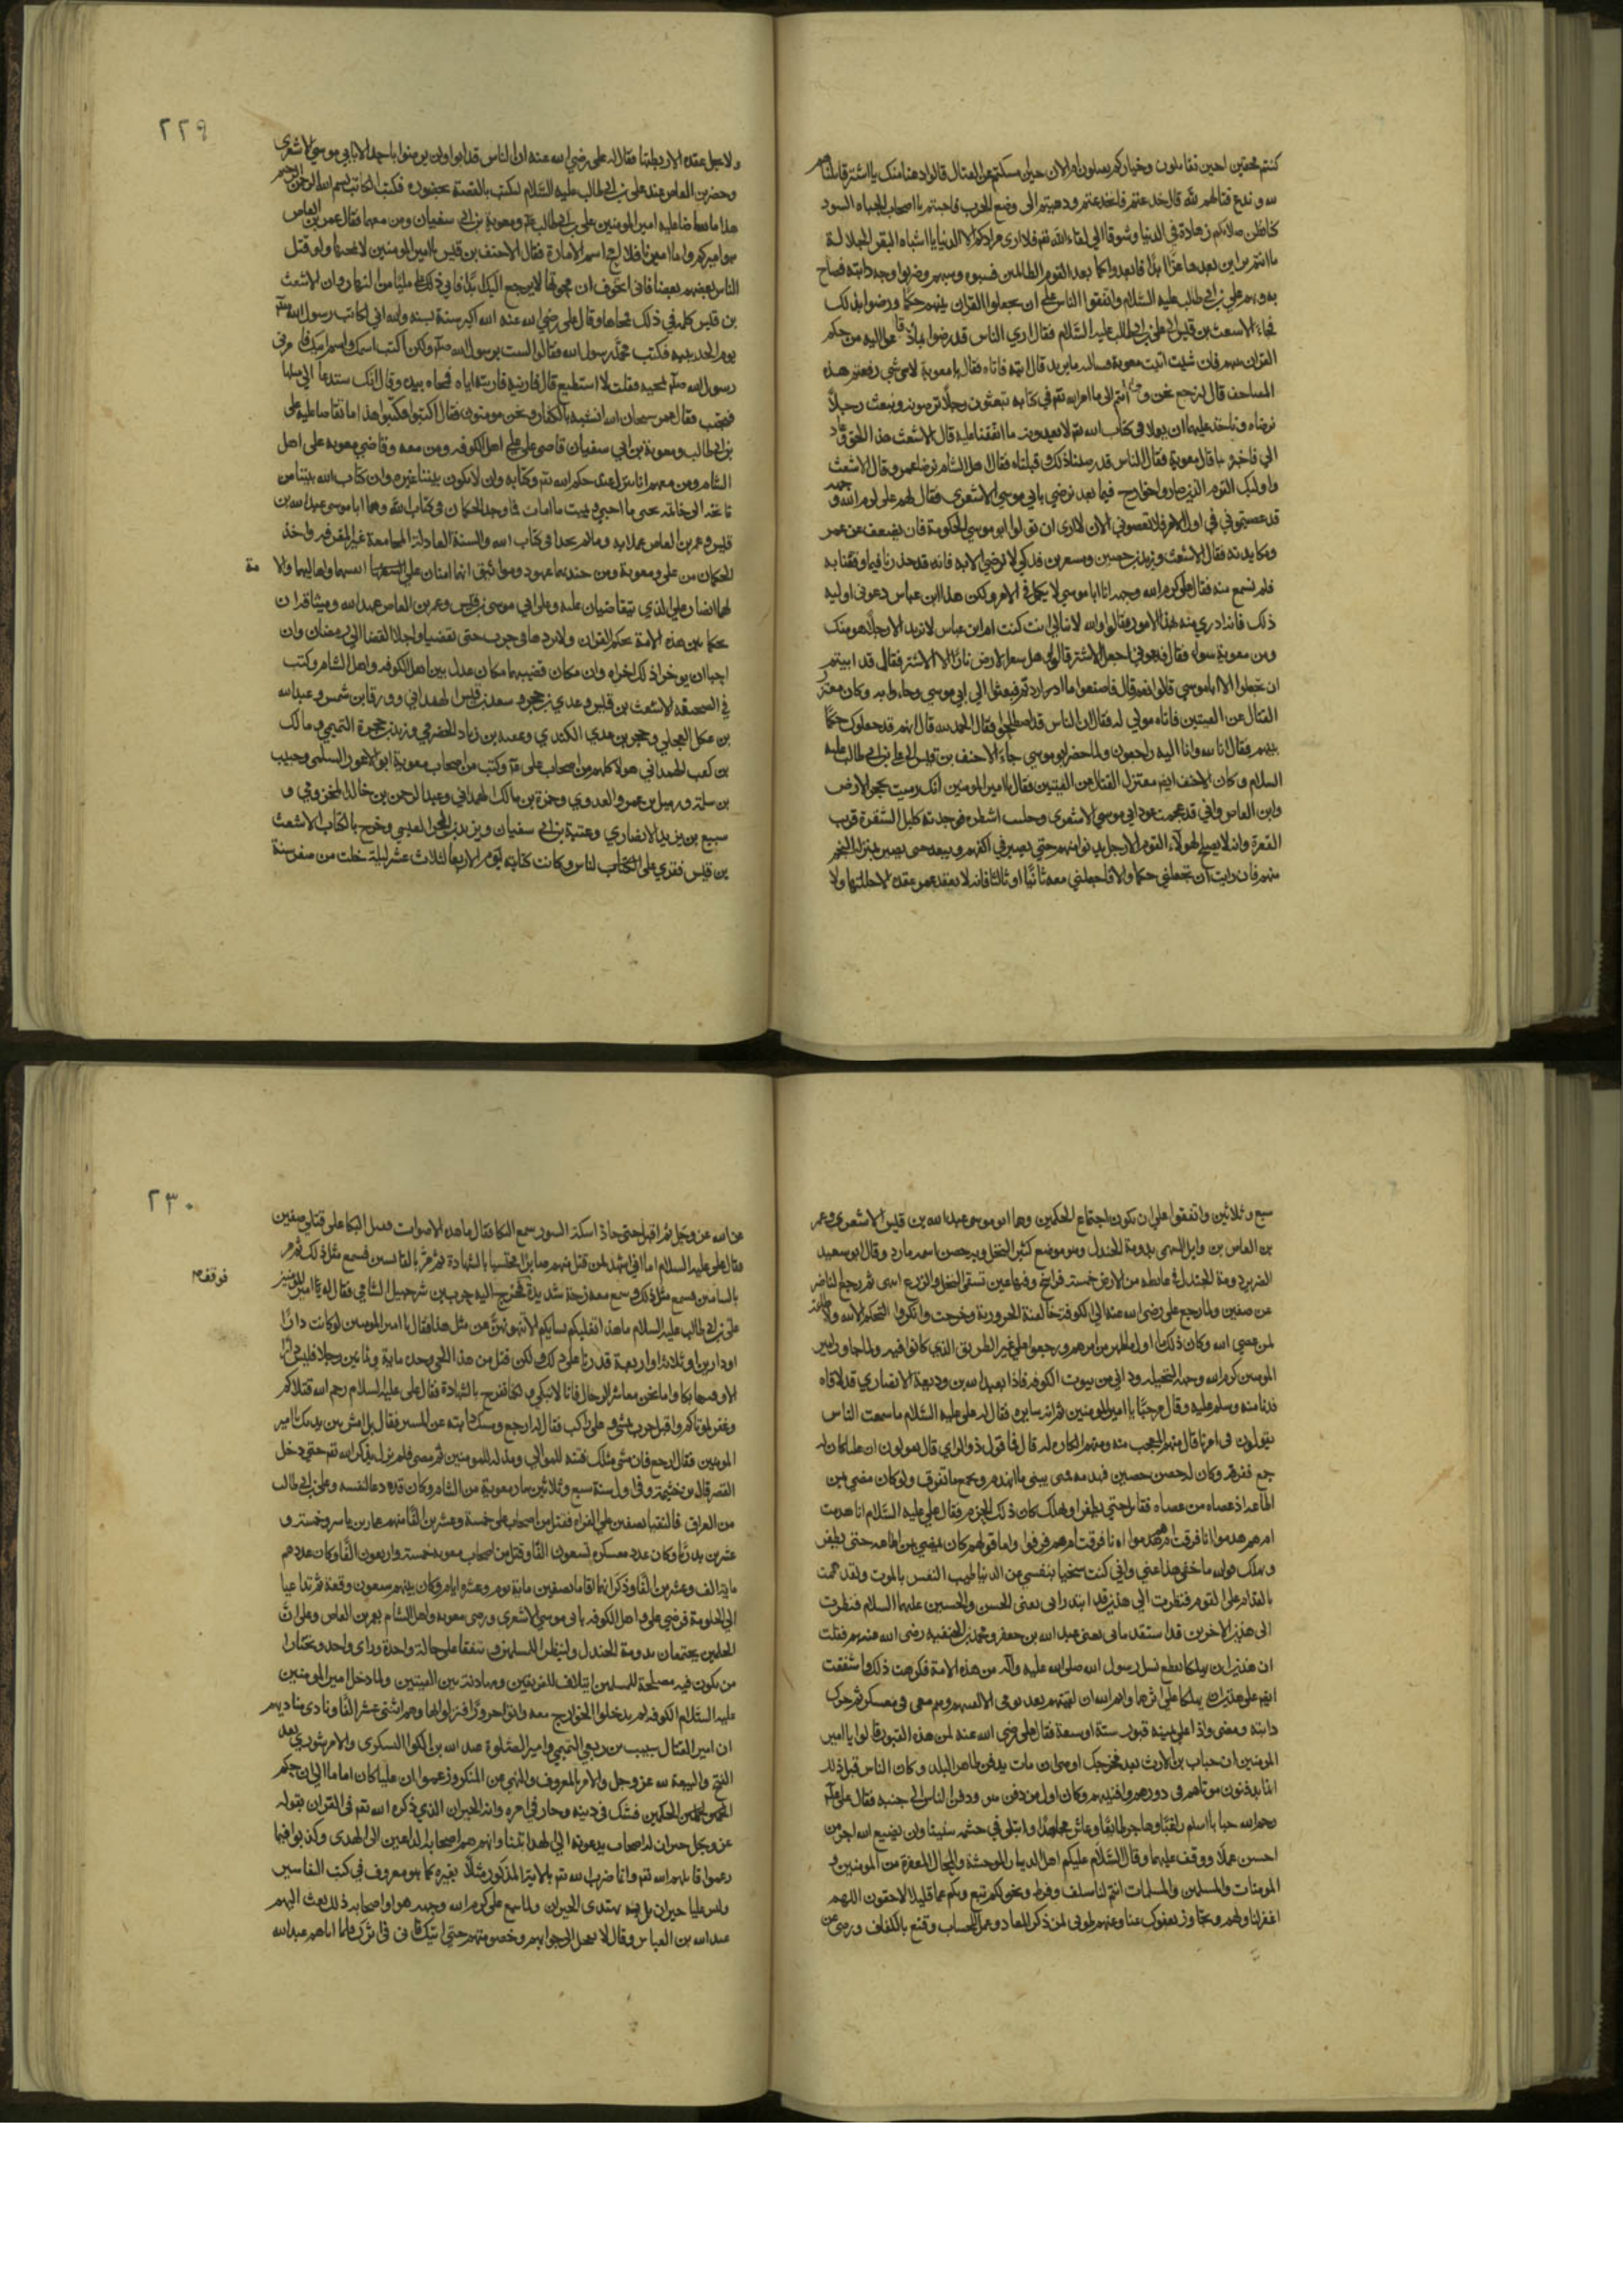 كنتم محقين احين تقاتلون وخياركم يقتلون ام الان حين امسكتم عن القتال قالوا دعنا منك يا اشتر قاتلناهم
لله وندع قتالهم لله قال خدعتم فانخدعتم ودعيتم الى وضع الحرب فاجبتم يا اصحاب الجباه السود
كنا نظن صلاتكم زهادة في الدنيا وشوقا الى لقاء الله تع فلا ارى مرادكم الا الدنيا يا اشباه البقر الجلالة
ما انتم براين بعدها عزا ابدا فابعدوا كما بعد القوم الظالمين فسبوه وسبهم وضربوا وجه دابته فصاح
بهم علي بن ابي طالب عليه السلام واتفقوا الناس على ان يجعلوا القران بينهم حكما ورضوا بذلك
فجاء الاشعث بن قيس الى علي بن ابي طالب عليه السلام فقال ارى الناس قد رضوا بما دعوا اليه من حكم
القران بينهم فان شيت اتيت معوية فسالته ما يريد قال ايته فاتاه فقال يا معوية لاى شي رفعتم هذه
المصاحف قال لنرجع نحن وانتم الى ما امر الله تع في كتابه تبعثون رجلا ترضونه ونبعث رجلا
نرضاه وناخذ عليهما ان يعملا في كتاب الله تع لا يعدونه ما اتفقنا عليه قال الاشعث هذا الحق وعاد
الى فاخبره بما قال معوية فقال الناس قد رضينا ذلك وقبلناه فقال اهل الشام نرضا عمرو قال الاشعث
واوليك القوم الذين صاروا خوارج فيما بعد نرضي بابي موسى الاشعرى فقال لهم على كرم الله وجهه
قد عصيتموني في اول الامر فلا تعصوني الان لا ارى ان تولوا ابو موسى الحكومة فان يضعف عن عمر
ومكايدته فقال الاشعث وزيد بن حصين ومسعر بن فدكي لا نرضي الا به فانه قد حذرنا فيما وقعنا به
فلم نسمع منه فقال على كرم الله وجهه انا ابا موسى لا يكمل في الامر ولكن هذا ابن عباس دعوني اوليه
ذلك فانه ادرى منه بهذا الامور فقالوا والله لا نبالي انت كنت ام ابن عباس لا نريد الا رجلا هو منك
ومن معوية سواء فقال فدعوني اجعل الاشتر قالوا وهل سعر الارض نارا الا الاشتر فقال قد ابيتم
ان تجعلوا الا ابا موسى قالوا نعم قال فاصنعوا ما اردتم فبعثوا الى ابي موسى وجاءوا به وكان معتزلا
القتال عن الفيتين فاتاه مولى له فقال ان الناس قد اصطلحوا فقال الحمد لله قال انهم قد جعلوك حكما
بينهم فقال انا لله وانا اليه راجعون ولما حضر ابو موسى جاء الاحنف بن قيس الى علي بن ابي طالب عليه
السلام وكان الاحنف ايضا معتزل القتال عن الفيتين فقال يا امير المومنين انك رميت بحجر الارض
وابن العاص واني قد عجمت عود ابي موسى الاشعرى وحلبت اشطره فوجدته كليل الشفرة قريب
القعرة وانه لا يصلح لهولاء القوم الا رجل يدنوا منهم حتى يصير في اكفهم ويبعد حتى يصير بمنزلة النجم
منهم فان رايت ان تجعلني حكما والا فاجعلني معه ثانيا او ثالثا فانه لا يعقد عمرو عقدة الا حللتها ولا
٢٢٩
ولا يحل عقدة الا ربطتها فقال له على رضي الله عنه ان الناس قد ابوا ولن يرضوا باحد الا بابي موسى الاشعرى
وحضر بن العاص عند على بن ابي طالب عليه السلام ليكتب بالقصة بحضوره فكتب الكاتب بسم الله الرحمن الرحيم
هذا ما تقاضا عليه امير المومنين علي بن ابي طالب عم ومعوية بن ابي سفيان ومن معهما فقال عمرو بن العاص
هو اميركم واما اميرنا فلا امح اسم الامارة فقال الاحنف بن قيس يا امير المومنين لا تمحها ولو قتل
الناس بعضهم بعضا فاني اتخوف ان محوتها لا يرجع اليك ابدا فابى ذلك علي مليا من النهار وان الاشعث
بن قيس كلمه في ذلك فمحاها وقال على رضي الله عنه الله اكبر سنة بسنة والله اني لكاتب رسول الله صلم
يوم الحديبية فكتبت محمد رسول الله فقالوا لست برسول الله صلم ولكن اكتب اسمك واسم ابيك فامرني
رسول الله صلم بمحيه فقلت لا استطيع قال فارنيه فاريته اياه فمحاه بيده وقال انك ستدعا الى مثلها
فتجيب فقال عمر سبحان الله انشبه بالكفار ونحن مومنون فقال اكتبوا فكتبوا هذا ما تقاضا عليه على
بن ابي طالب ومعوية بن ابي سفيان قاضى علي على اهل الكوفه ومن معه وقاضي معويه على اهل
الشام ومن معهم اننا ننزل عند حكم الله تع وكتابه وان لا يكون بيننا غيره وان كتاب الله بيننا من
فاتحته الى خاتمته نحيى ما احيى ونميت ما امات فما وجد الحكمان في كتاب الله وهما ابا موسى عبد الله بن
قيس وعمر بن العاص عملا به وما لم يجدا في كتاب الله والسنة العادلة الجامعة غير المفرقه واخذ
الحكمان من على ومعوية ومن جنديهما عهود ومواثيق انهما امنان على انفسهما واهاليهما والامة
لهما انصار على الذي يتقاضيان عليه وعلى ابي موسى بن قيس وعمر بن العاص عهد الله وميثاقه ان
يحكما بين هذه الامة بحكم القران ولا يردها في حرب حتى تقضيا واجلا القضا الى رمضان وان
احبا ان يوخرا ذلك اخراه وان مكان قضيتهما مكان عدل بين اهل الكوفه واهل الشام وكتب
في الصحيفه الاشعث بن قيس وعدي بن حجر وسعد بن قيس الهمداني وورقا بن شمس وعبد الله
بن عكل العجلي وحجر بن عدي الكندي وعقبه بن زياد الحضرمي وزيد بن حجرة التميمي ومالك
بن كعب الهمداني هولاء كلهم من اصحاب على عم وكتب من اصحاب معوية ابو الاعور السلمي وحبيب
بن سلمة ورميل بن عمرو العدوي وحمزة بن مالك الهمداني وعبد الرحمن بن خالد المخزومي و
سبيع بن يزيد الانصاري وعتبة بن ابي سفيان ويزيد بن الحر العبسي وخرج بالكتاب الاشعث
بن قيس فقرى على الناس وكانت كتابته يوم الاربعا لثلاث عشر ليلة خلت من صفر سنة
سبع وثلاثين واتفقوا على ان تكون اجتماع الحكمين وهما ابو موسى عبد الله بن قيس الاشعرى وعمر
بن العاص بن وايل السهمى بدومة الجندل وهو موضع كثير النخل وبه حصن اسمه مارد وقال ابو سعيد
الضرير دومة الجندل في غايطه من الارض خمسة فراسخ وفيها عين تسقى النخل والزرع انتهى ثم رجع الناس
عن صفين ولما رجع على رضى الله عنه الى الكوفة خالفته الحرورية وخرجت وانكروا التحكيم الا لله ولا طاعة
لمن عصى الله وكان ذلك اول ما ظهر من امرهم ورجعوا على غير الطريق الذي كانوا فيه ولما جاوز امير
المومنين كرم الله وجهه النخيله وداني من بيوت الكوفه فاذا بعبد الله بن وديعة الانصاري قد لاقاه
فدنا منه وسلم عليه وقال مرحبا يا امير المومنين ثم انه سايره فقال له على عليه السلام ما سمعت الناس
يقولون في امرنا قال منهم المعجب منه ومنهم الكاره له قال فما قول ذو الراي قال يقولون ان عليا كان له
جمع ففرقه وكان له حصن حصين فهدمه متى يبنى ما انهدم ويجمع ما تفرق ولو كان مضى بمن
اطاعه اذ عصاه من عصاه فقاتل حتى يظفر او هلك كان ذلك الحزم فقال على عليه السلام انا هدمت
ام هم هدموا انا فرقت ام هم فرقوا واما قولهم كان يمضي بمن اطاعه حتى يظفر
او يهلك فوالله ما خفى هذا عني واني كنت سخيا بنفسي عن الدنيا طيب النفس بالموت ولقد هممت
بالاقدام على القوم فنظرت الى هذين قد ابتدراني يعنى الحسن والحسين عليهما السلام فنظرت
الى هذين الاخرين قد استقدماني يعنى عبد الله بن جعفر ومحمد بن الحنفيه رضى الله عنهم فقلت
ان هذين ان يهلكا انقطع نسل رسول الله صلى الله عليه وآله من هذه الامة فكرهت ذلك واشفقت
ايضا على هذين ان يهلكا على اثرهما وايم الله ان لقيتهم بعد يومي لا القينهم وهم معى في معسكر ثم حرك
دابته ومضى واذا على يمينه قبور ستة او سبعة فقال على رضى الله عنه لمن هذه القبور قالوا يا امير
المومنين ان خباب بن الارت بعد مخرجك اوصى ان مات يدفن ظاهر البلد وكان الناس قبل ذلك
انما يدفنون موتاهم في دورهم وافنيتهم وكان اول من دفن ودفن الناس الى جنبه فقال على عم
رحم الله خبابا اسلم راغبا وهاجر طايعا وعاش مجاهدا وابتلى في جسمه سنينا ولن يضيع الله اجر من
احسن عملا ووقف عليهما وقال السلام عليكم اهل الديار الموحشة والمحال المقفرة من المومنين و
المومنات والمسلمين والمسلمات انتم لنا سلف وفرط ونحن لكم تبع وبكم عما قليل لاحقون اللهم
اغفر لنا ولهم وتجاوز بعفوك عنا وعنهم طوبى لمن ذكر المعاد وعمل للحساب وقنع بالكفاف ورضى عن
٢٣٠
عن الله عز وجل ثم اقبل حتى حاذ اسكة السور سمع البكا فقال ما هذه الاصوات فقيل البكا على قتلى صفين
فقال على عليه السلام اما اني اشهد لمن قتل منهم صابرا محتسبا بالشهادة ثم مر فسمع مثل ذلك ثم مر
بالشامين فسمع مثل ذلك وسمع معه رجة شديدة فوقف فخرج اليه حرب بن شرحبيل الشامي فقال له يا امير المومنين
على بن ابي طالب عليه السلام ما هذا اتغلبكم نسايكم الا تنهونهن عن مثل هذا فقال يا امير المومنين لو كانت دارا
او دارين او ثلاثة او اربعة قدرنا على ذلك ولكن قتل من هذا الحي وحده ماية وثمانين رجلا فليس دارا
الا وفيها بكا واما نحن معاشر الرجال فانا لا نبكي ولكنا نفرح بالشهادة فقال على عليه السلام رحم الله قتلاكم
وغفر لموتاكم واقبل حرب يمشي وعلى راكب فقال له ارجع ومسك دابته عن المسير فقال بل امشى بين يديك يا امير
المومنين فقال ارجع فان مشى مثلك فتنة للوالي ومذلة للمومنين ثم مضى فلم يزل يذكر الله تع حتى دخل
القصر قال بن خثيمة وفى اول سنة سبع وثلاثين سار معوية من الشام وكان قد دعا لنفسه وعلى بن ابي طالب
من العراق فالتقيا بصفين على الفراة فقتل من اصحاب على خمسة وعشرين الفا منهم عمار بن ياسر وخمسة و
عشرين بدريا وكان عدد معسكره تسعون الفا وقتل من اصحاب معويه خمسة واربعون الفا وكان عددهم
ماية الف وعشرين الفا وذكر انهما اقاما بصفين ماية يوم وعشرة ايام وكان بينهم سبعون وقعة ثم تداعيا
الى الحكومة فرضي على واهل الكوفه بابى موسى الاشعرى ورضى معويه واهل الشام بعمر بن العاص وعلى ان
الحكمين يجتمعان بدومة الجندل ولينظر المسلمين ويتفقا على حالة واحدة وراى واحد ويختارا
من يكون فيه مصلحة للمسلمين ايتلاف للفريقين ومهادنة بين الفيتين ولما دخل امير المومنين
عليه السلام الكوفه لم يدخلوا الخوارج معه واتوا حرورا فنزلوا بها وهم اثنتى عشر الفا ونادى مناديهم
ان امير القتال شبيب بن ربعي التميمي وامير الصلوة عبد الله بن الكوا اليشكرى والامر شورى بعد
الفتح والبيعة لله عز وجل والامر بالمعروف والنهى عن المنكر وزعموا ان عليا كان اماما الى ان حكم
الحكمين فشك في دينه وحار في امره وانه الحيران الذي ذكره الله تع في القران بقوله
عز وجل حيران له اصحاب يدعونه الى الهدا ايتنا وانهم هم اصحابه الداعين الى الهدى وكذبوا فيما
زعموا قاتلهم الله تع وانما ضرب الله تع بالاية المذكورة مثلا بغيره كما هو معروف في كتب التفاسير
وليس عليا حيران بل به يهتدى الحيران ولما سمع على كرم الله وجهه هو واصحابه ذلك بعث اليهم
عبد الله بن العباس وقال لا تعجل الى جوابهم وخصومتهم حتى اتيك فاني في اثرك فلما اتاهم عبد الله